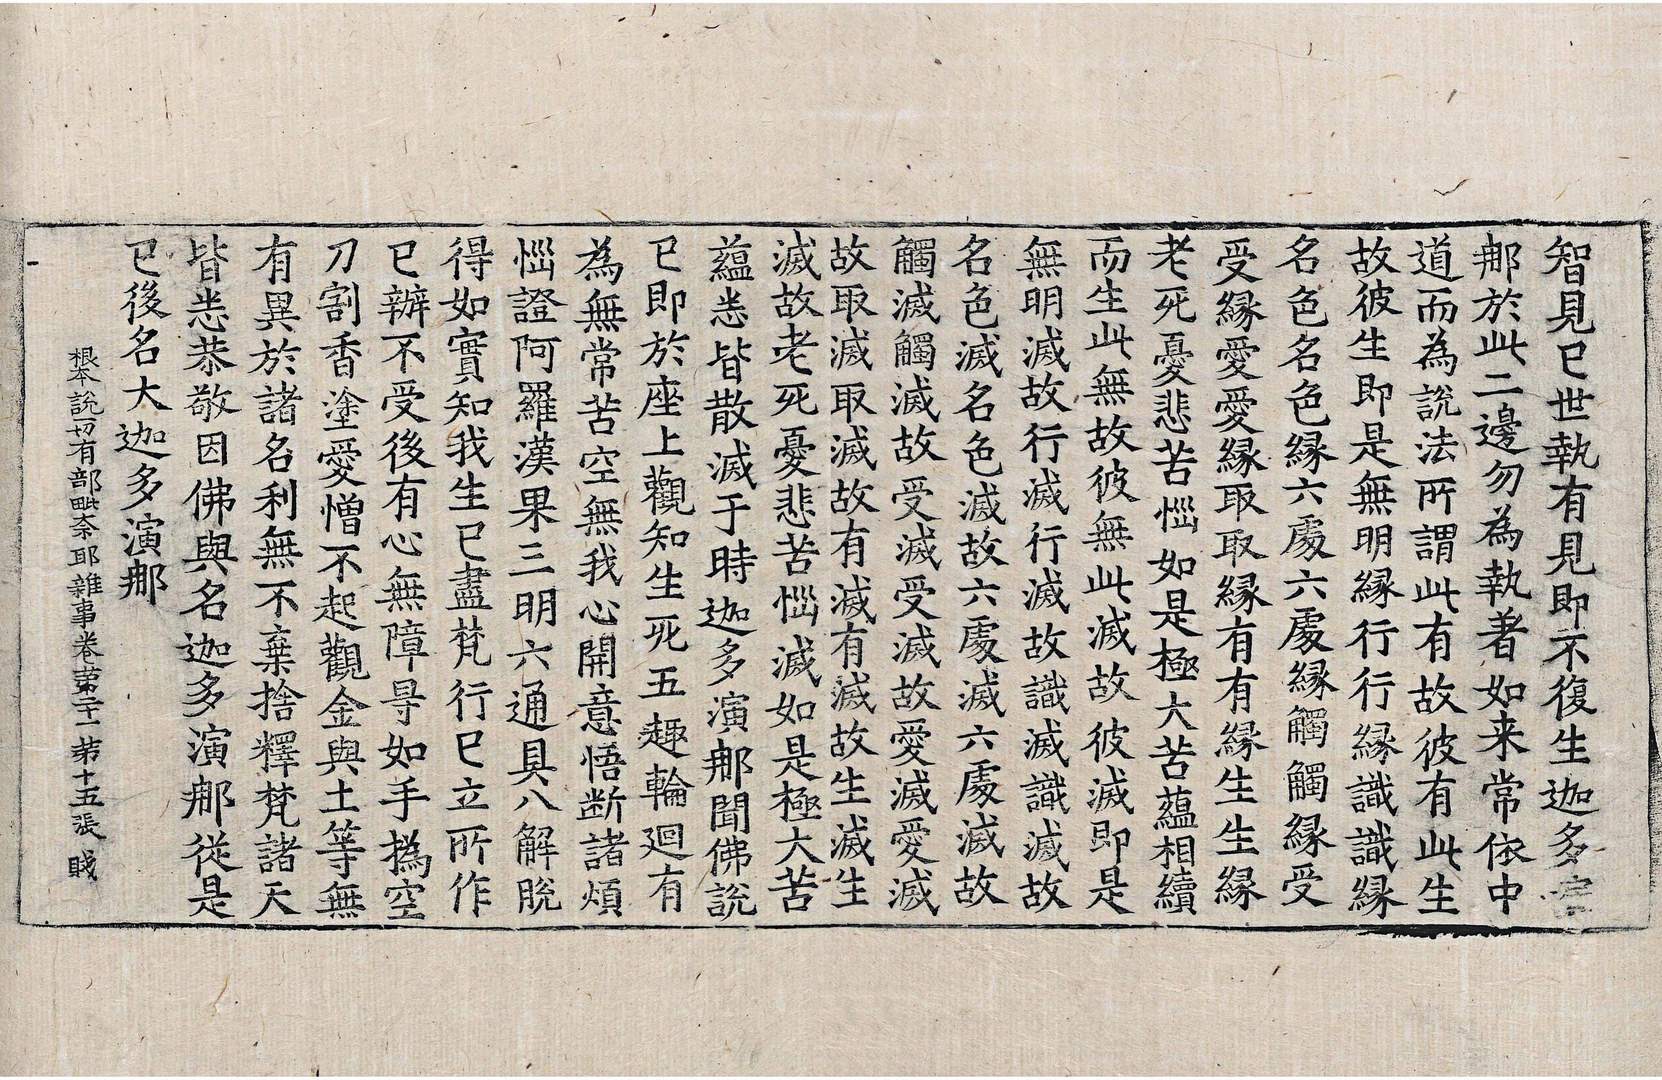 智見已世執有見即不復生迦多
那於此二邊勿為執著如来常依中
道而為說法所謂此有故彼有此生
故彼生即是無明緣行行緣識識緣
名色名色緣六處六處緣觸觸緣受
受緣愛愛緣取取緣有有緣生生緣
老死憂悲苦惱如是極大苦蘊相續
而生此無故彼無此滅故彼滅即是
無明滅故行滅行滅故識滅識滅故
名色滅名色滅故六處滅六處滅故
觸滅觸滅故受滅受滅故愛滅愛滅
故取滅取滅故有滅有滅故生滅生
滅故老死憂悲苦惱滅如是極大苦
蘊悉皆散滅于時迦多演那聞佛說
已即於座上觀知生死五趣輪迴有
為無常苦空無我心開意悟断諸煩
惱證阿羅漢果三明六通具八解脫
得如實知我生已盡梵行已立所作
已辦不受後有心無障㝵如手撝空
刀割香塗愛憎不起觀金與土等無
有異於諸名利無不棄捨釋梵諸天
皆悉恭敬因佛與名迦多演那從是
已後名大迦多演那
根本說一切有部毗奈耶雜事卷第二十一 第十五張 賊